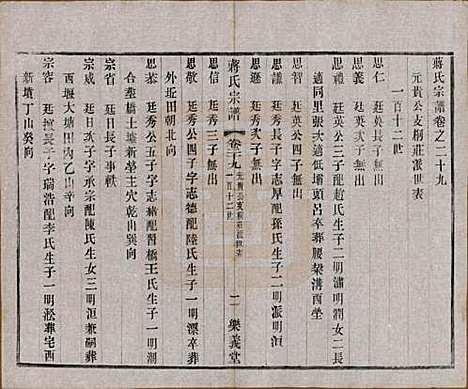 蔣氏宗譜卷之二十九
元貴公支桐莊派世表
一百十二世
思仁 廷英長子無出
思義 廷英公三子字 配趙氏生子二明瀟明潤女二長
適同里張大低壩頭呂卒葬腰
思智 廷英公四子無出
思謙 廷秀長子字志厚配孫氏生子二明派明洧
思遜 廷秀次子無出
思信 廷秀三子無出
思敬 廷秀公四子字志德配陸氏生子一明漂卒葬
外圫田朝北向
蔣氏宗譜 卷二十九 元貴公支桐莊派世表 一百十二世 二 樂義堂
思恭 廷秀公五子字志緒配曹橋王氏生子一明潮
合葬橋土墩新塋壬穴乾山巽向
宗省 廷日長子事軼
宗威 廷日次子字承宗配陳氏生女三明洹兼嗣葬
西堰大塘田內乙山辛向
宗容 廷日長子字瑞浩配李氏生子一明淞葬宅西
新墳丁山癸向